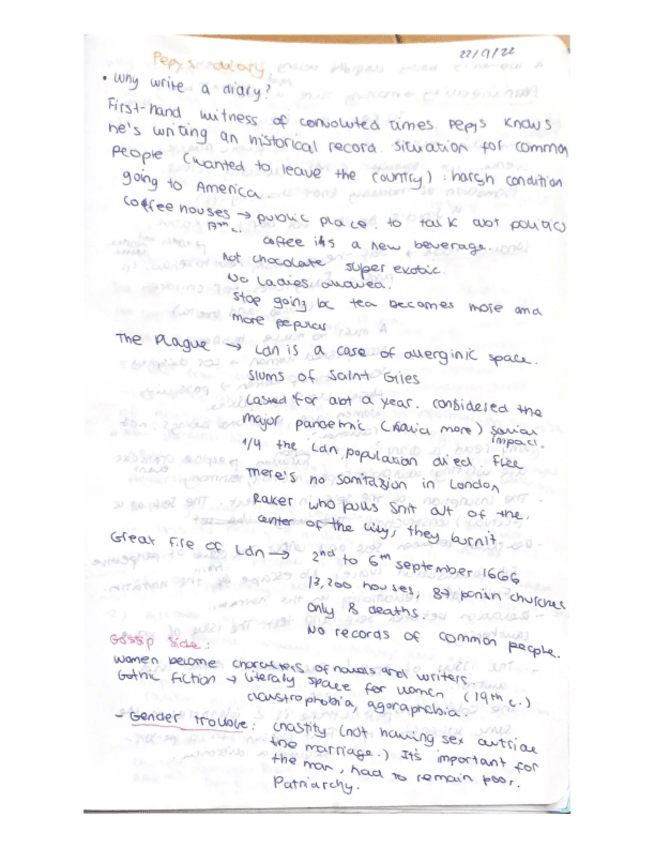 22/9/22
Pepys diary
• Why write a diary?
First-hand witness of convoluted times. Pepys knows
he's writing an historical record. Situation for common
people (wanted to leave the country) : harsh condition
going to America.
Coffee houses → public place. to talk abt politics
17th c.
coffee its a new beverage.
Hot chocolate super exotic.
No Ladies allowed.
Stop going bc tea becomes more and
more popular
The Plague → Ldn is a case of allerginic space.
Slums of Saint Giles
Lasted for abt a year. considered the
major pandemic more) social
impact.
1/4 the Ldn population died. Flee
There's no sanitazion in London
Raker who pulls shit out of the
center of the city, they burn it.
Great Fire of Ldn → 2nd to 6th september 1666
13,200 houses, 87 parish churches
only 8 deaths.
No records of common people.
Gossip side:
Women become characters of novels and writers.
Gothic fiction → literaly space for women (19th c.)
claustrophobia, agoraphobia.
- Gender trouble: chastity (not having sex
the marriage.) It's important for
the man, had to remain poor.
Patriarchy.